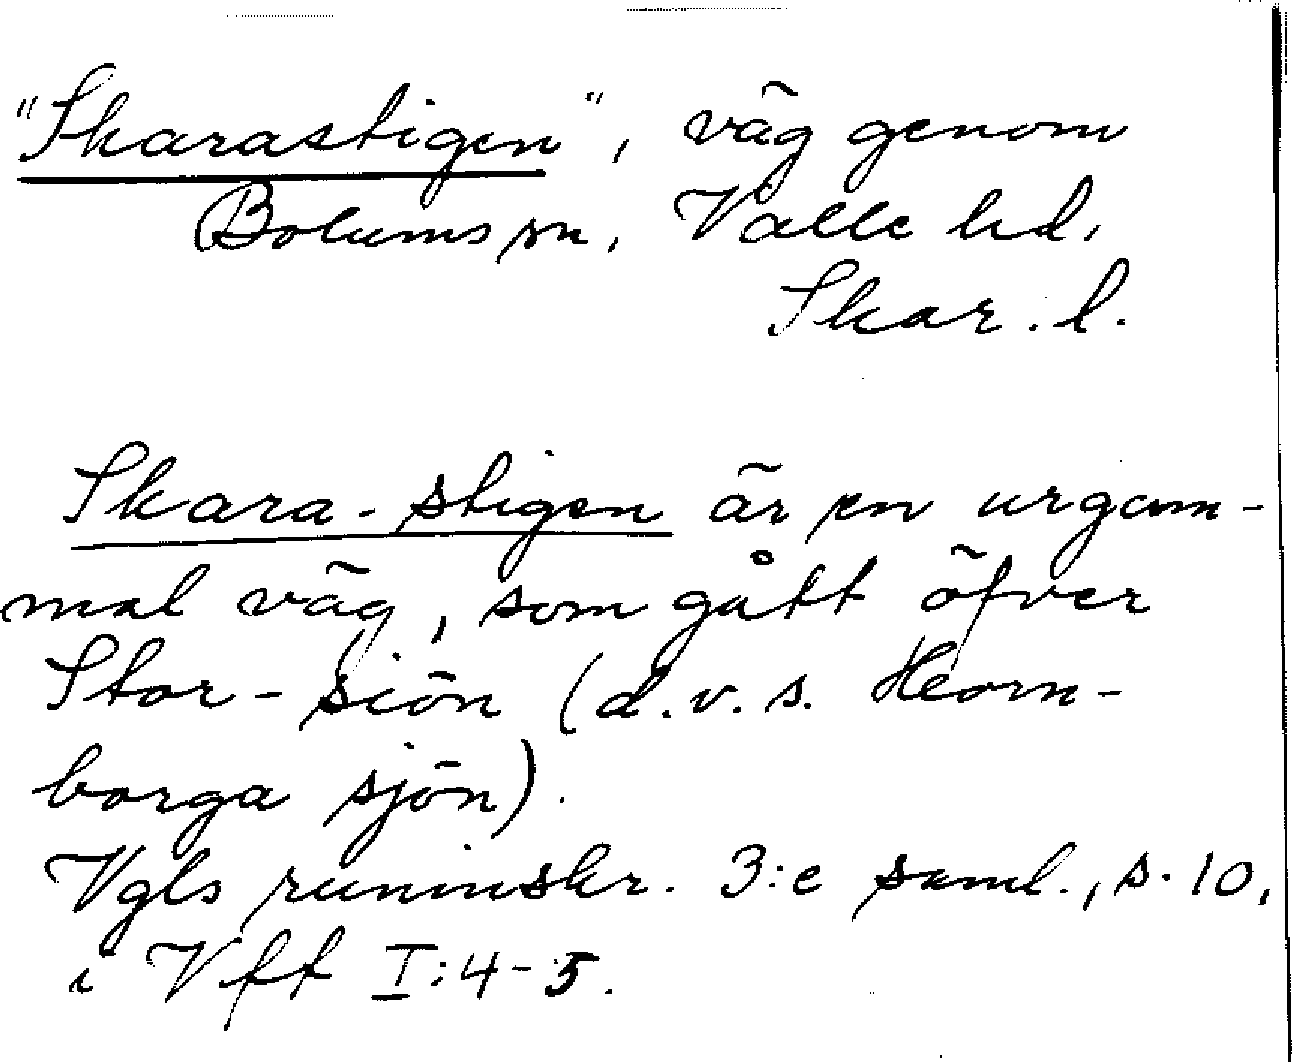 "Skarastigen", väg genom
Bolums sn, Valle hd,
Skar. l.
Skara-stigen är en urgam-
mal väg, som gått öfver
Stor-sjön (d.v.s. Horn-
borga sjön).
Vgls runinskr. 3:e saml., s. 10,
i Vft I:4-5.